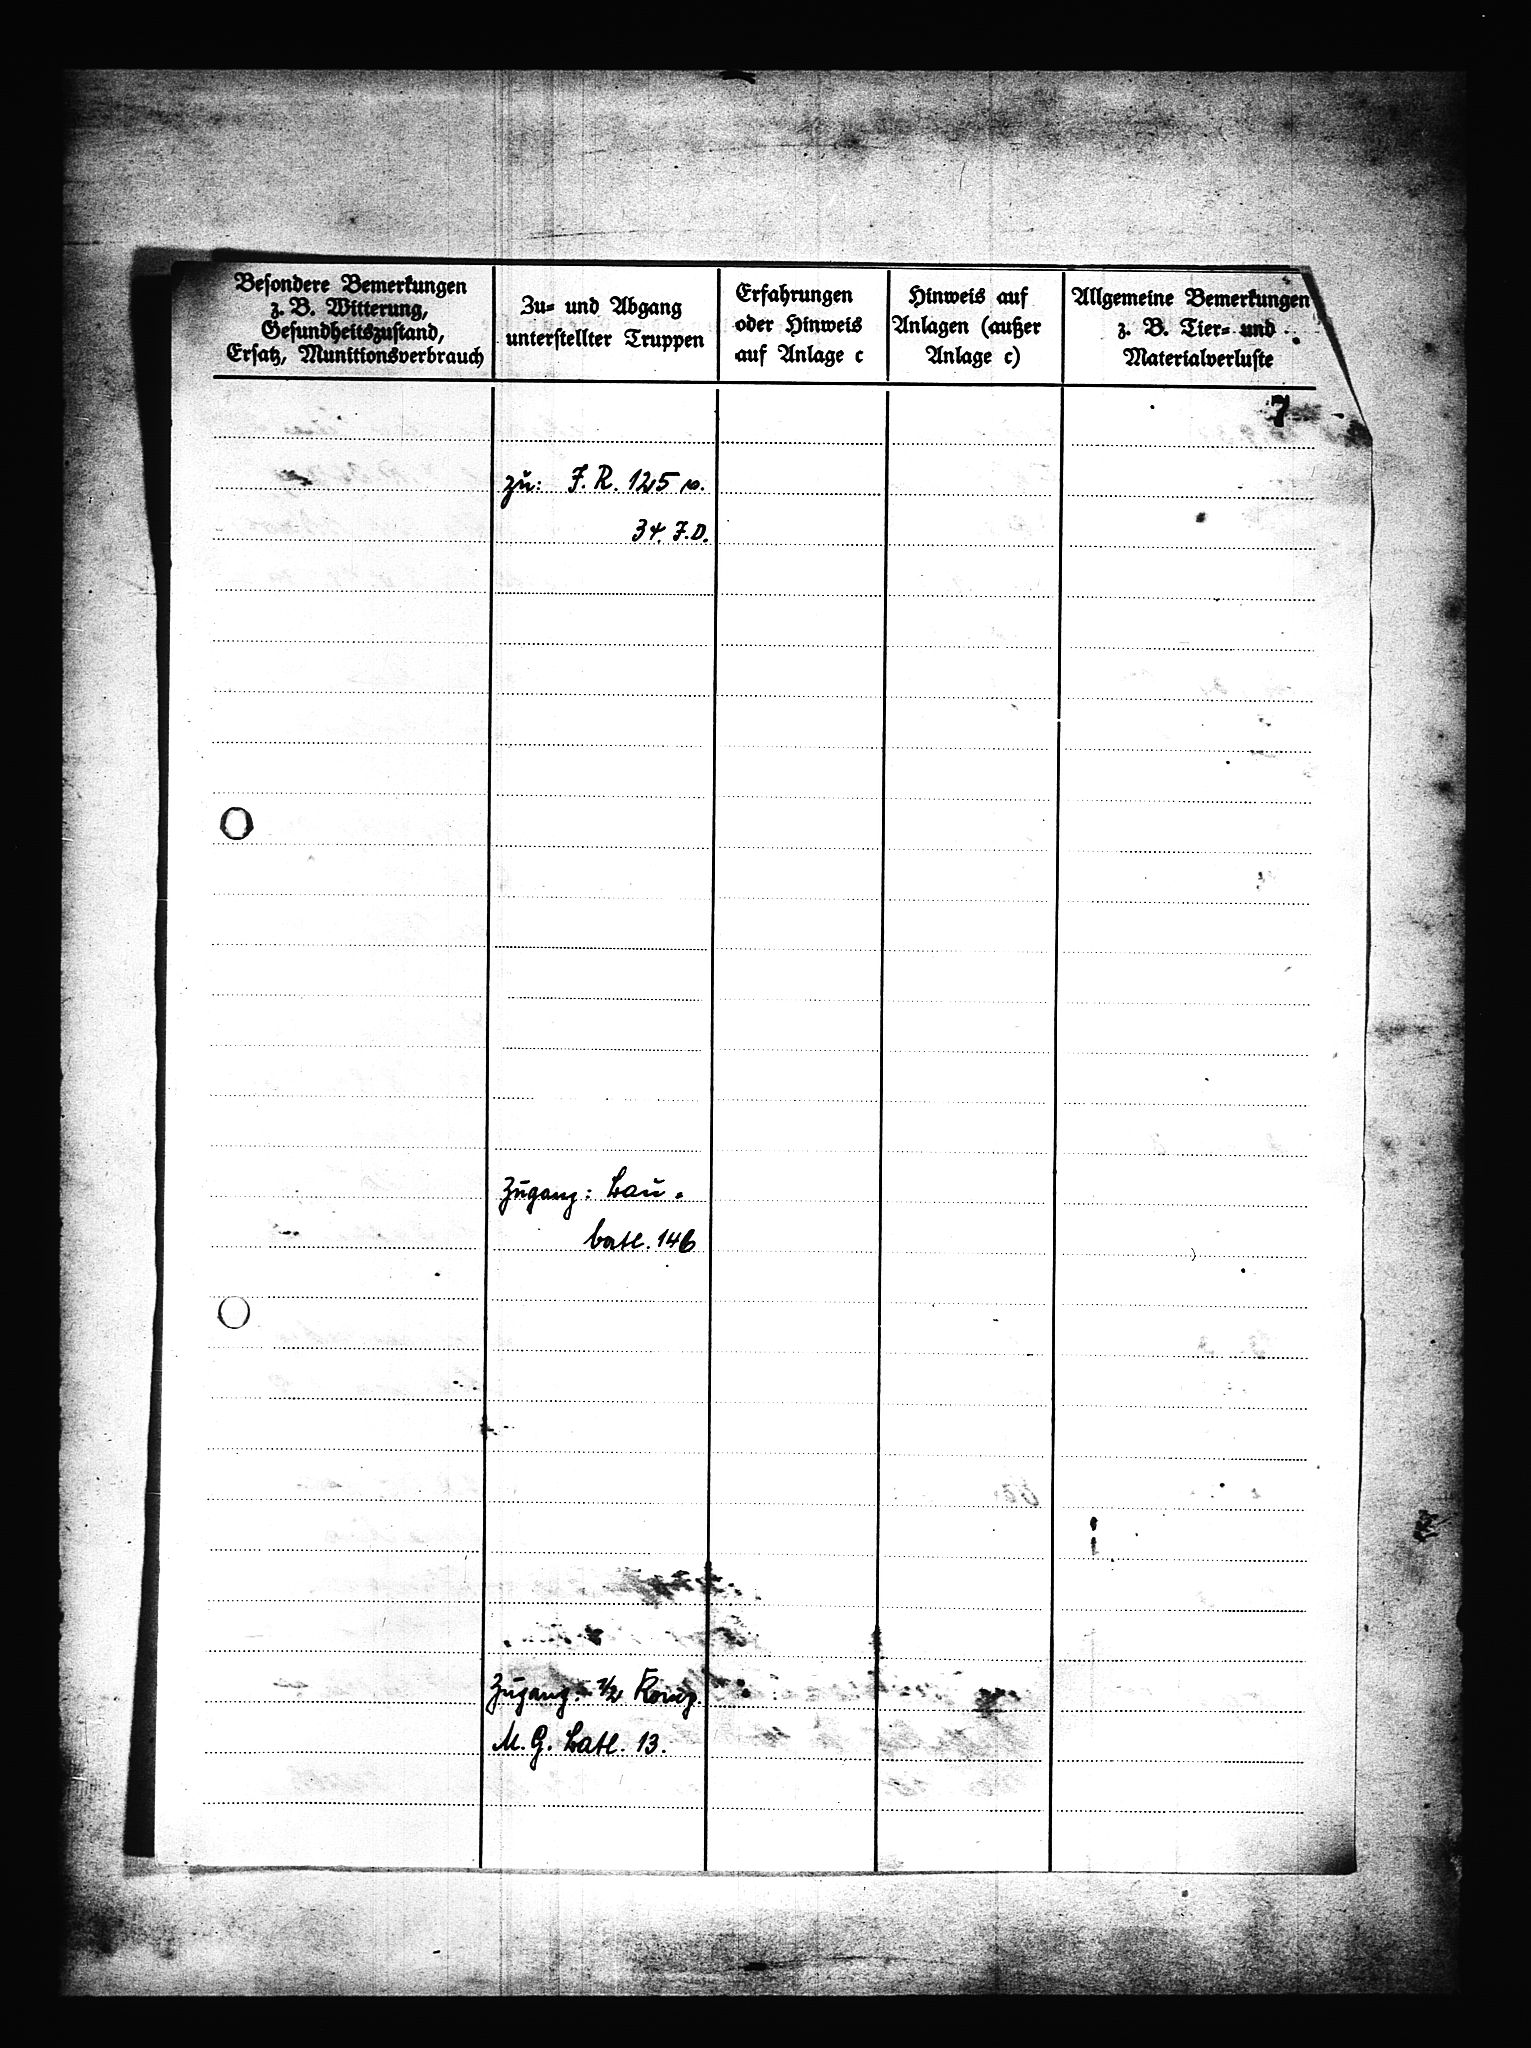 Besondere Bemerkungen
z. B. Witterung,
Gesundheitszustand,
Ersatz, Munitionsverbrauch
Zu- und Abgang
unterstellter Truppen
Erfahrungen
oder Hinweis
auf Anlage c
Hinweis auf
Anlagen (außer
Anlage c)
Allgemeine Bemerkungen
z. B. Tier- und
Materialverluste
7
zu: J. R. 125 v.
34. J.D.
Zugang: Bau-
batl. 146
Zugang: 1/2 Komp.
M. G. Batl. 13.